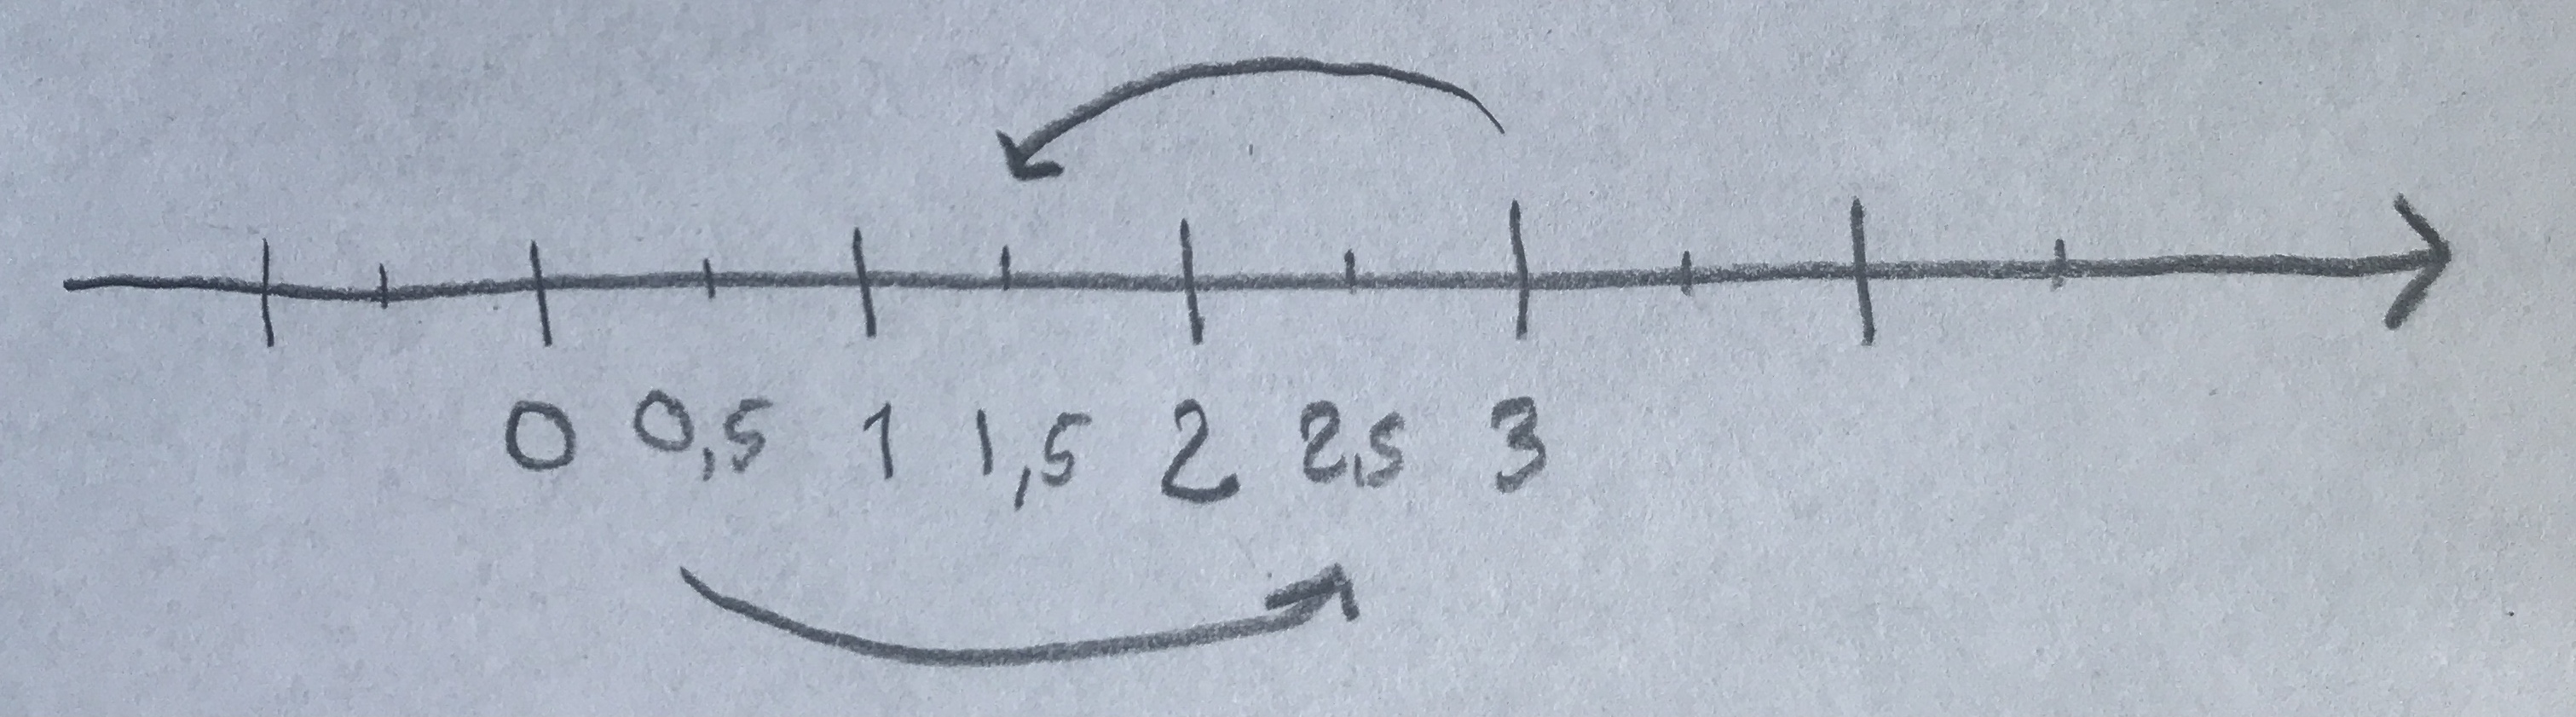 0 0,5 1 1,5 2 2,5 3